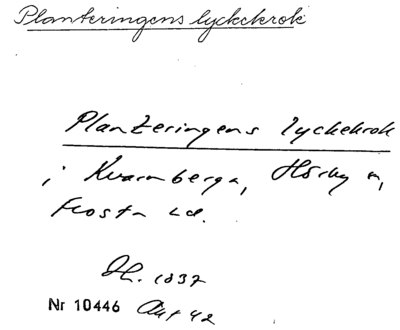 Planteringens lyckekrok
Planteringens lyckekrok
i Kvarnberga, Hörby n,
Frosta hd.
1037
Nr 10446 Akt 42